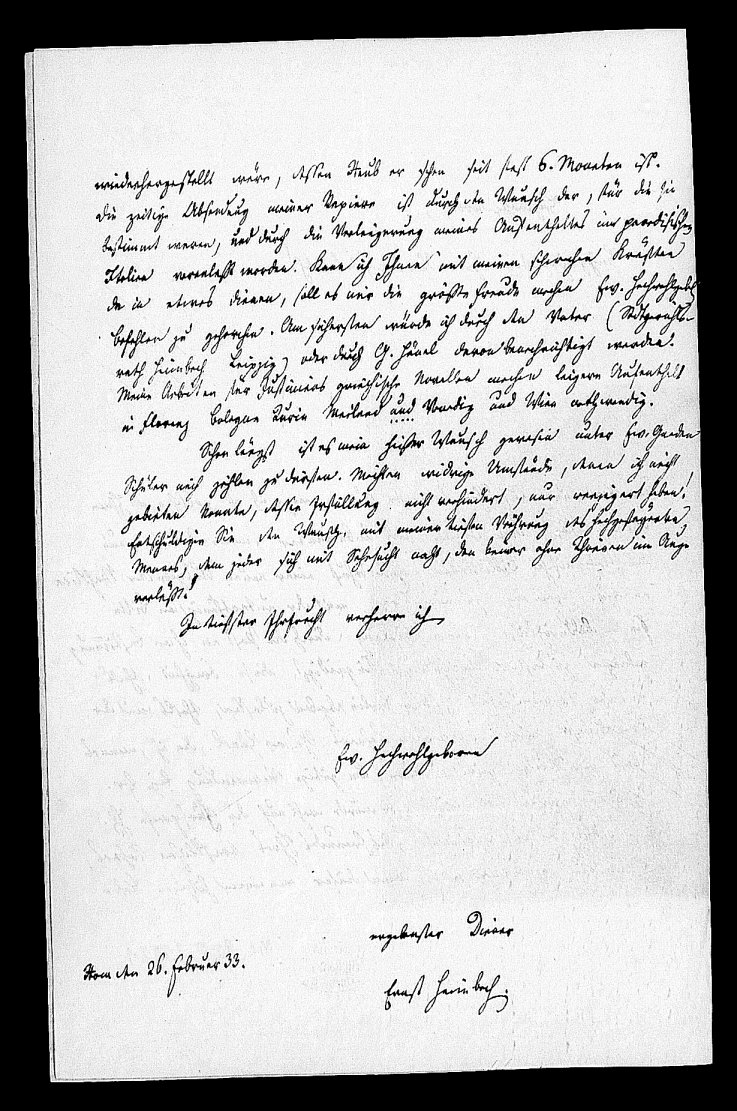 wiederhergestellt wäre, dessen Raub er schon seit fast 6. Monaten ist.
Die zeitige Absendung meiner Papiere ist durch den Wunsch der, für die sie
bestimmt waren, und durch die Verlängerung meines Aufenthaltes im paradisischen
Italien veranlaßt worden. Kann ich Ihnen mit meinen schwachen Kräften
da in etwas dienen, soll es mir die größte Freude machen Ew. Hochwohlgeb.
Befehlen zu gehorchen. Am sichersten würde ich durch den Vater (Stdtgerichts-
rath Heimbach Leipzig) oder durch G. Hänel davon benachrichtigt werden.
Meine Arbeiten für Justinians griechische Novellen machen längern Aufenthalt
in Florenz Bologna Turin Mailand und Venedig und Wien nothwendig.
Schon längst ist es mein heißer Wunsch gewesen unter Ew. Gnaden
Schüler mich zählen zu dürfen. Möchten widrige Umstände, denen ich nicht
gebieten konnte, dessen Erfüllung nicht verhindert, nur verzögert haben!
Entschuldigen Sie den Wunsch, mit meiner tiefen Verehrung des hochgefeierten
Mannes, dem jeder sich mit Sehnsucht naht, den keiner ohne Thränen im Auge
verläßt!
In tiefster Ehrfurcht verharre ich
Ew. Hochwohlgeboren
ergebenster Diener
Rom den 26. Februar 33.
Ernst Heimbach.